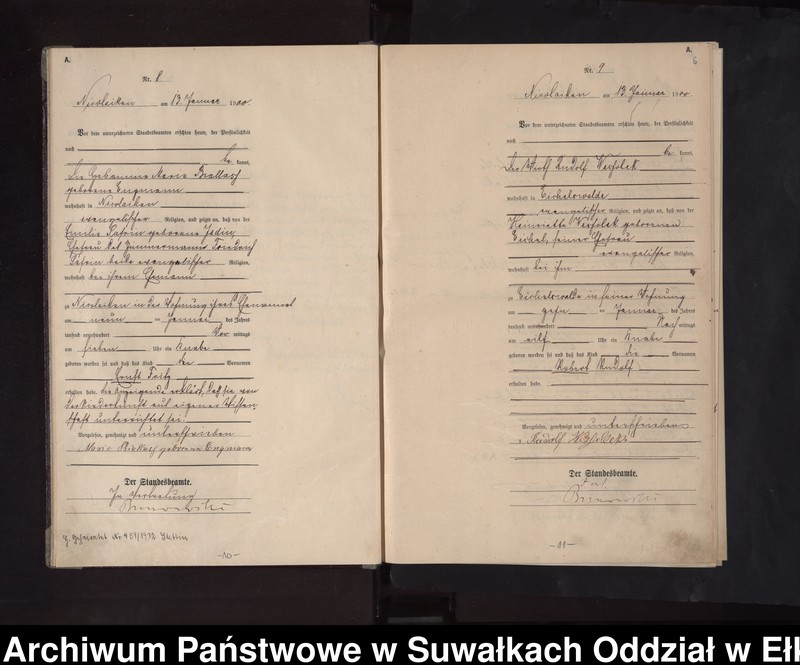 A.
Nr. 8
Nicolaiken am 13. Januar 1900
Vor dem unterzeichneten Standesbeamten erschien heute, der Persönlichkeit
nach
be kannt,
die Hebamme Marie
geborene Engmann
wohnhaft in Nicolaiken
evangelischer Religion, und zeigte an, daß von der
Emilie geborene
Ehefrau des Zimmermanns Friedrich
beide evangelischer Religion,
wohnhaft bei ihrem Ehemann
zu Nicolaiken in der Wohnung ihres Ehemannes
am neun ten Januar des Jahres
tausend neunhundert Vor mittags
um sieben Uhr ein Knabe
geboren worden sei und daß das Kind die Vornamen
Ernst Fritz
erhalten habe. die Anzeigende erklärt, daß sie von
der Niederkunft aus eigener Wissen-
schaft unterrichtet sei.
Vorgelesen, genehmigt und unterschrieben
Marie geborene Engmann
Der Standesbeamte.
In Vertretung
-10-
A.
6
Nr. 9
Nicolaiken am 13. Januar 1900
Vor dem unterzeichneten Standesbeamten erschien heute, der Persönlichkeit
nach
be kannt,
der Rudolf
wohnhaft in
evangelischer Religion, und zeigte an, daß von der
Henriette geborenen
seiner Ehefrau
evangelischer Religion,
wohnhaft bei ihm
zu in seiner Wohnung
am zehn ten Januar des Jahres
tausend neunhundert Nach mittags
um eilf Uhr ein Knabe
geboren worden sei und daß das Kind die Vornamen
Robert Rudolf
erhalten habe.
Vorgelesen, genehmigt und unterschrieben
Rudolf
Der Standesbeamte.
-11-
Archiwum Państwowe w Suwałkach Oddział w Ełk